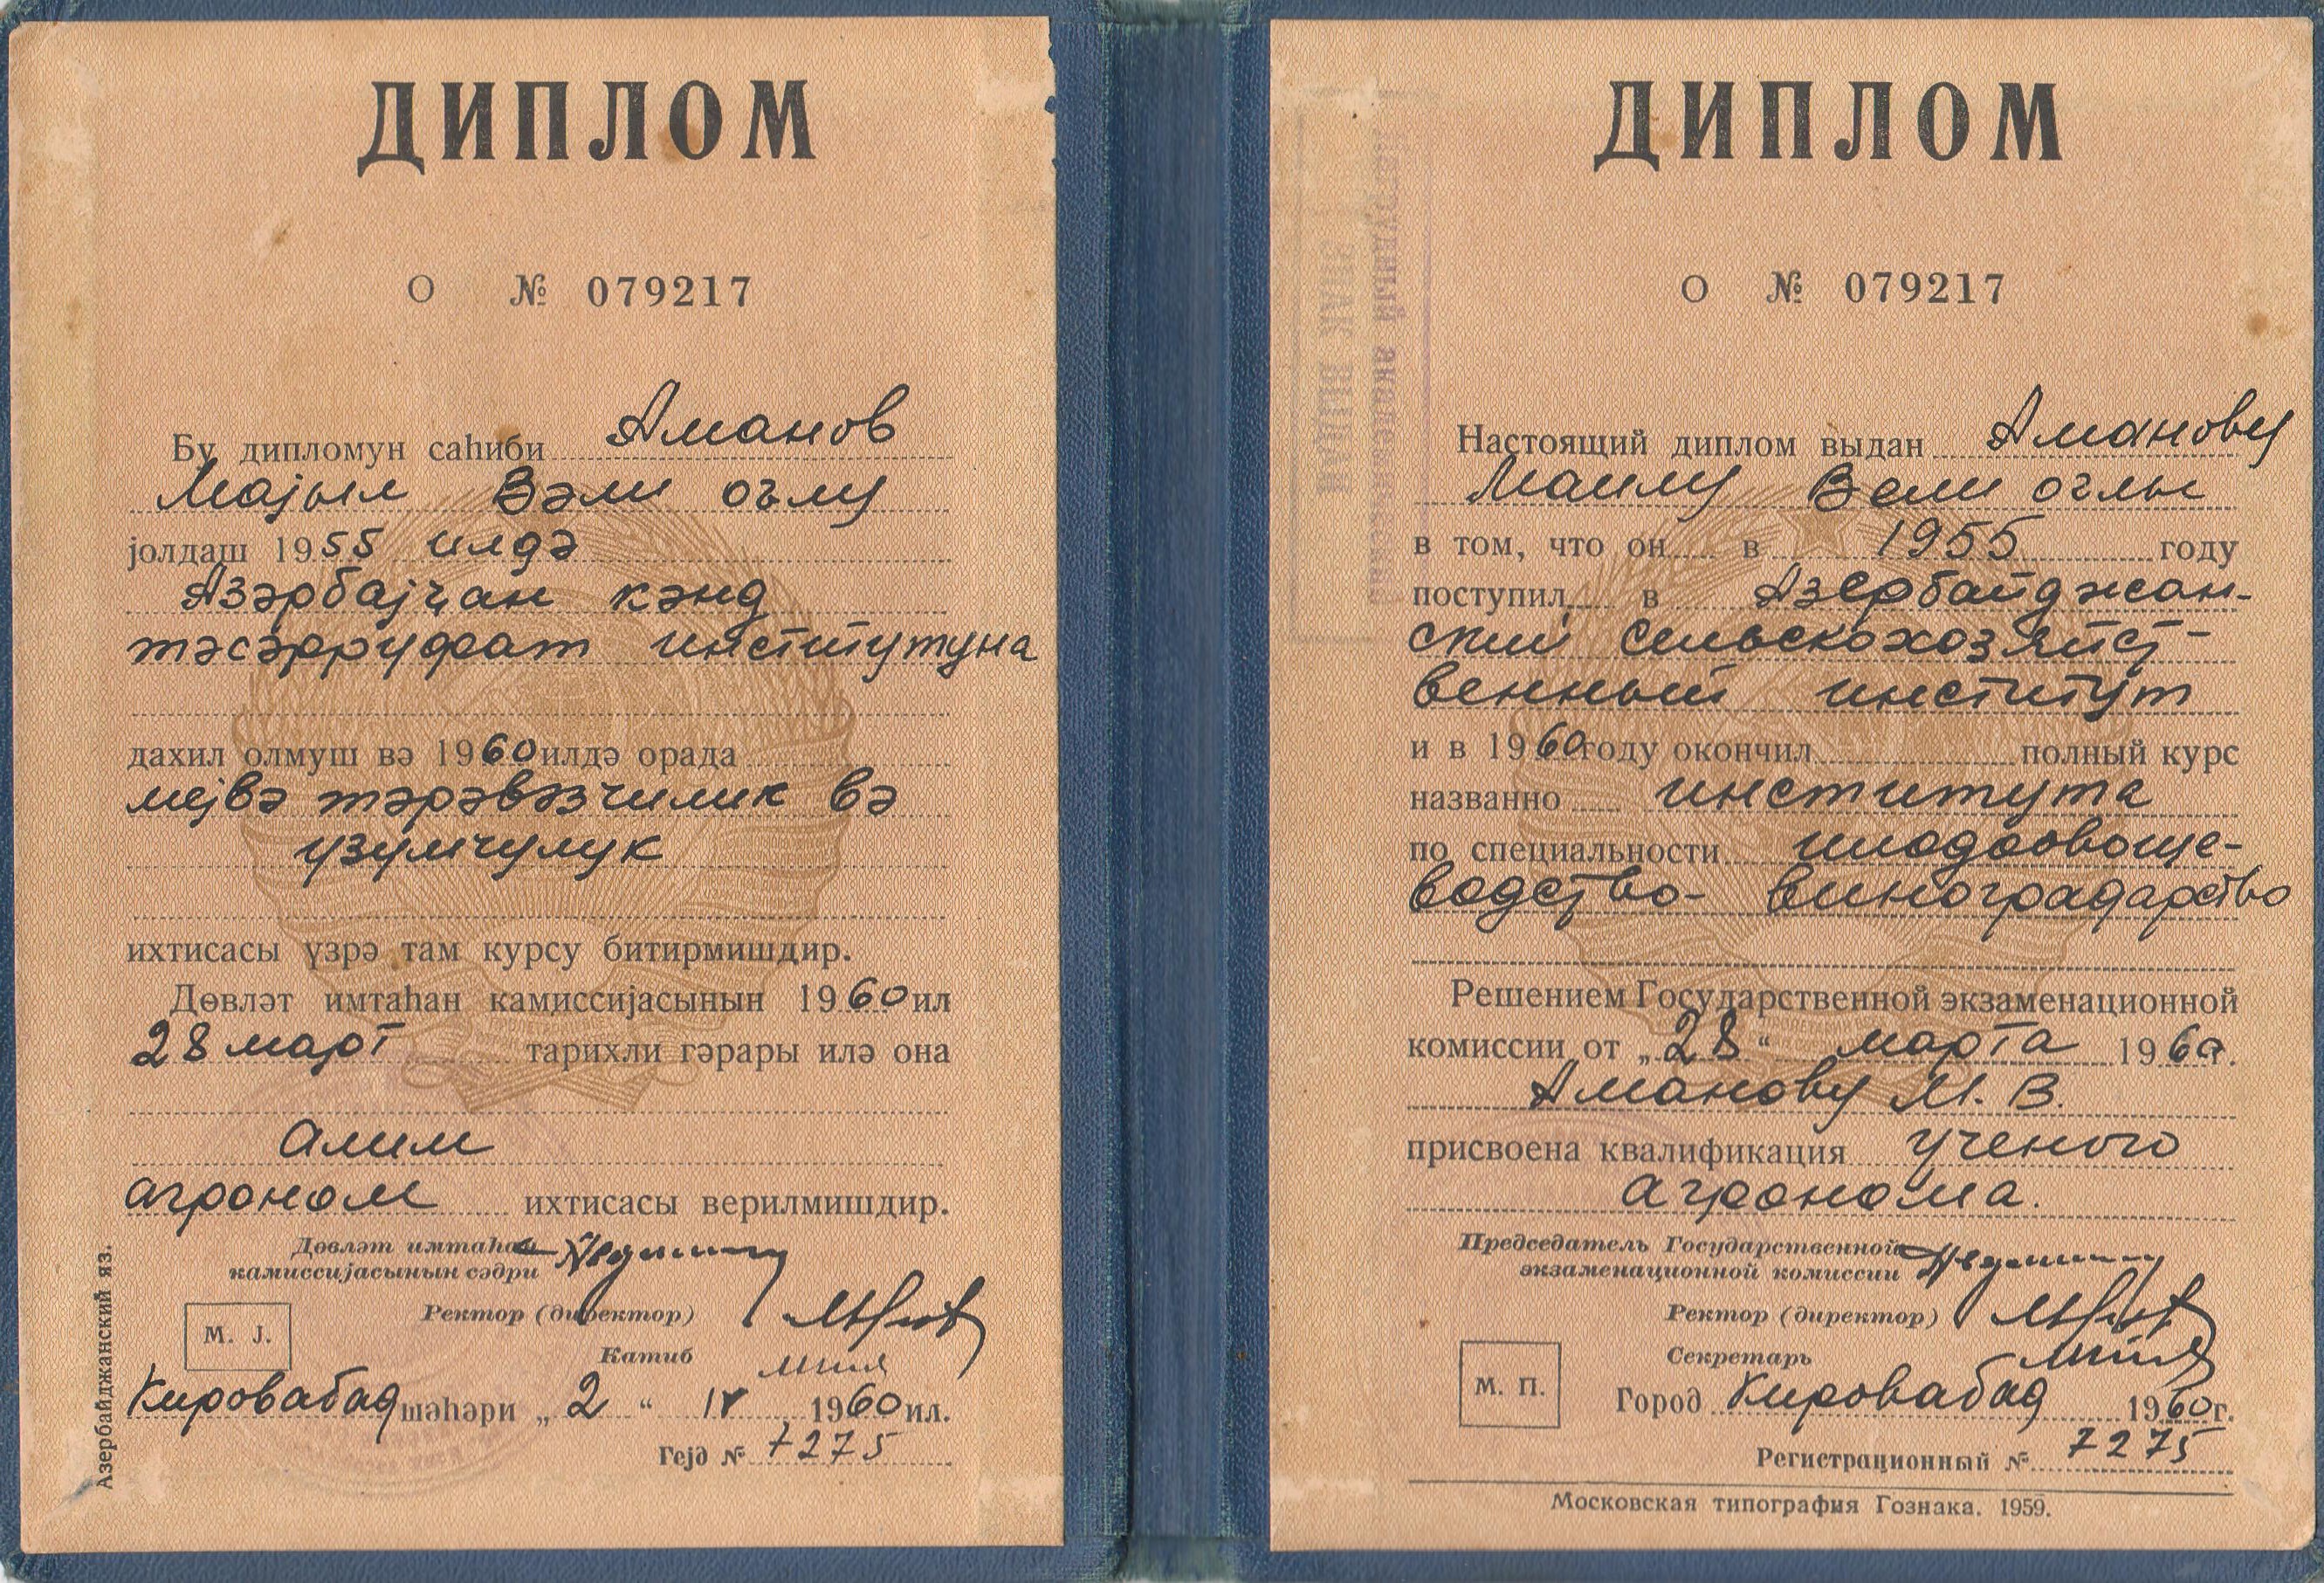 ДИПЛОМ
О № 079217
Бу дипломун саһиби Аманов
Мајыл Вәли оғлу
јолдаш 1955 илдә
Азәрбајҹан кәнд
тәсәррүфат институтуна
дахил олмуш вә 1960 илдә орада
мејвә тәрәвәзчилик вә
үзүмчүлүк
ихтисасы үзрә там курсу битирмишдир.
Дөвләт имтаһан камиссијасынын 1960 ил
28 март тарихли гәрары илә она
алим
агроном ихтисасы верилмишдир.
Дөвләт имтаһан
камиссијасынын сәдри
Ректор (директор)
М. Ј.
Катиб
Кировабад шәһәри „2“ IV 1960 ил.
Гејд № 7275
Азербайджанский яз.
ДИПЛОМ
О № 079217
Настоящий диплом выдан Аманову
Маилу Вели оглы
в том, что он в 1955 году
поступил в Азербайджан-
ский сельскохозяйст-
венный институт
и в 1960 году окончил полный курс
названно института
по специальности плодоовоще-
водство- виноградарство
Решением Государственной экзаменационной
комиссии от „28“ марта 1960.
Аманову М. В.
присвоена квалификация ученого
агронома.
Председатель Государственной
экзаменационной комиссии
Ректор (директор)
Секретарь
М. П.
Город Кировабад 1960 г.
Регистрационный № 7275
Московская типография Гознака. 1959.